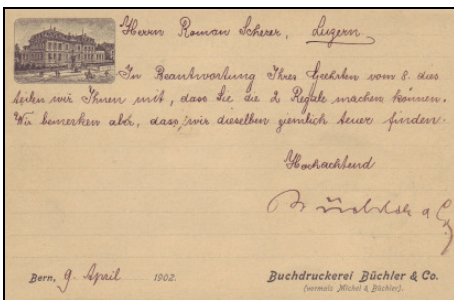 Herrn Roman Scherer, Luzern
In Beantwortung Ihres Geehrten vom 8. dies
teilen wir Ihnen mit, dass Sie die 2 Regale machen können.
Wir bemerken aber, dass wir dieselben ziemlich teuer finden.
Hochachtend
Büchler & Co.
Bern, 9. April 1902.
Buchdruckerei Büchler & Co.
(vormals Michel & Büchler).